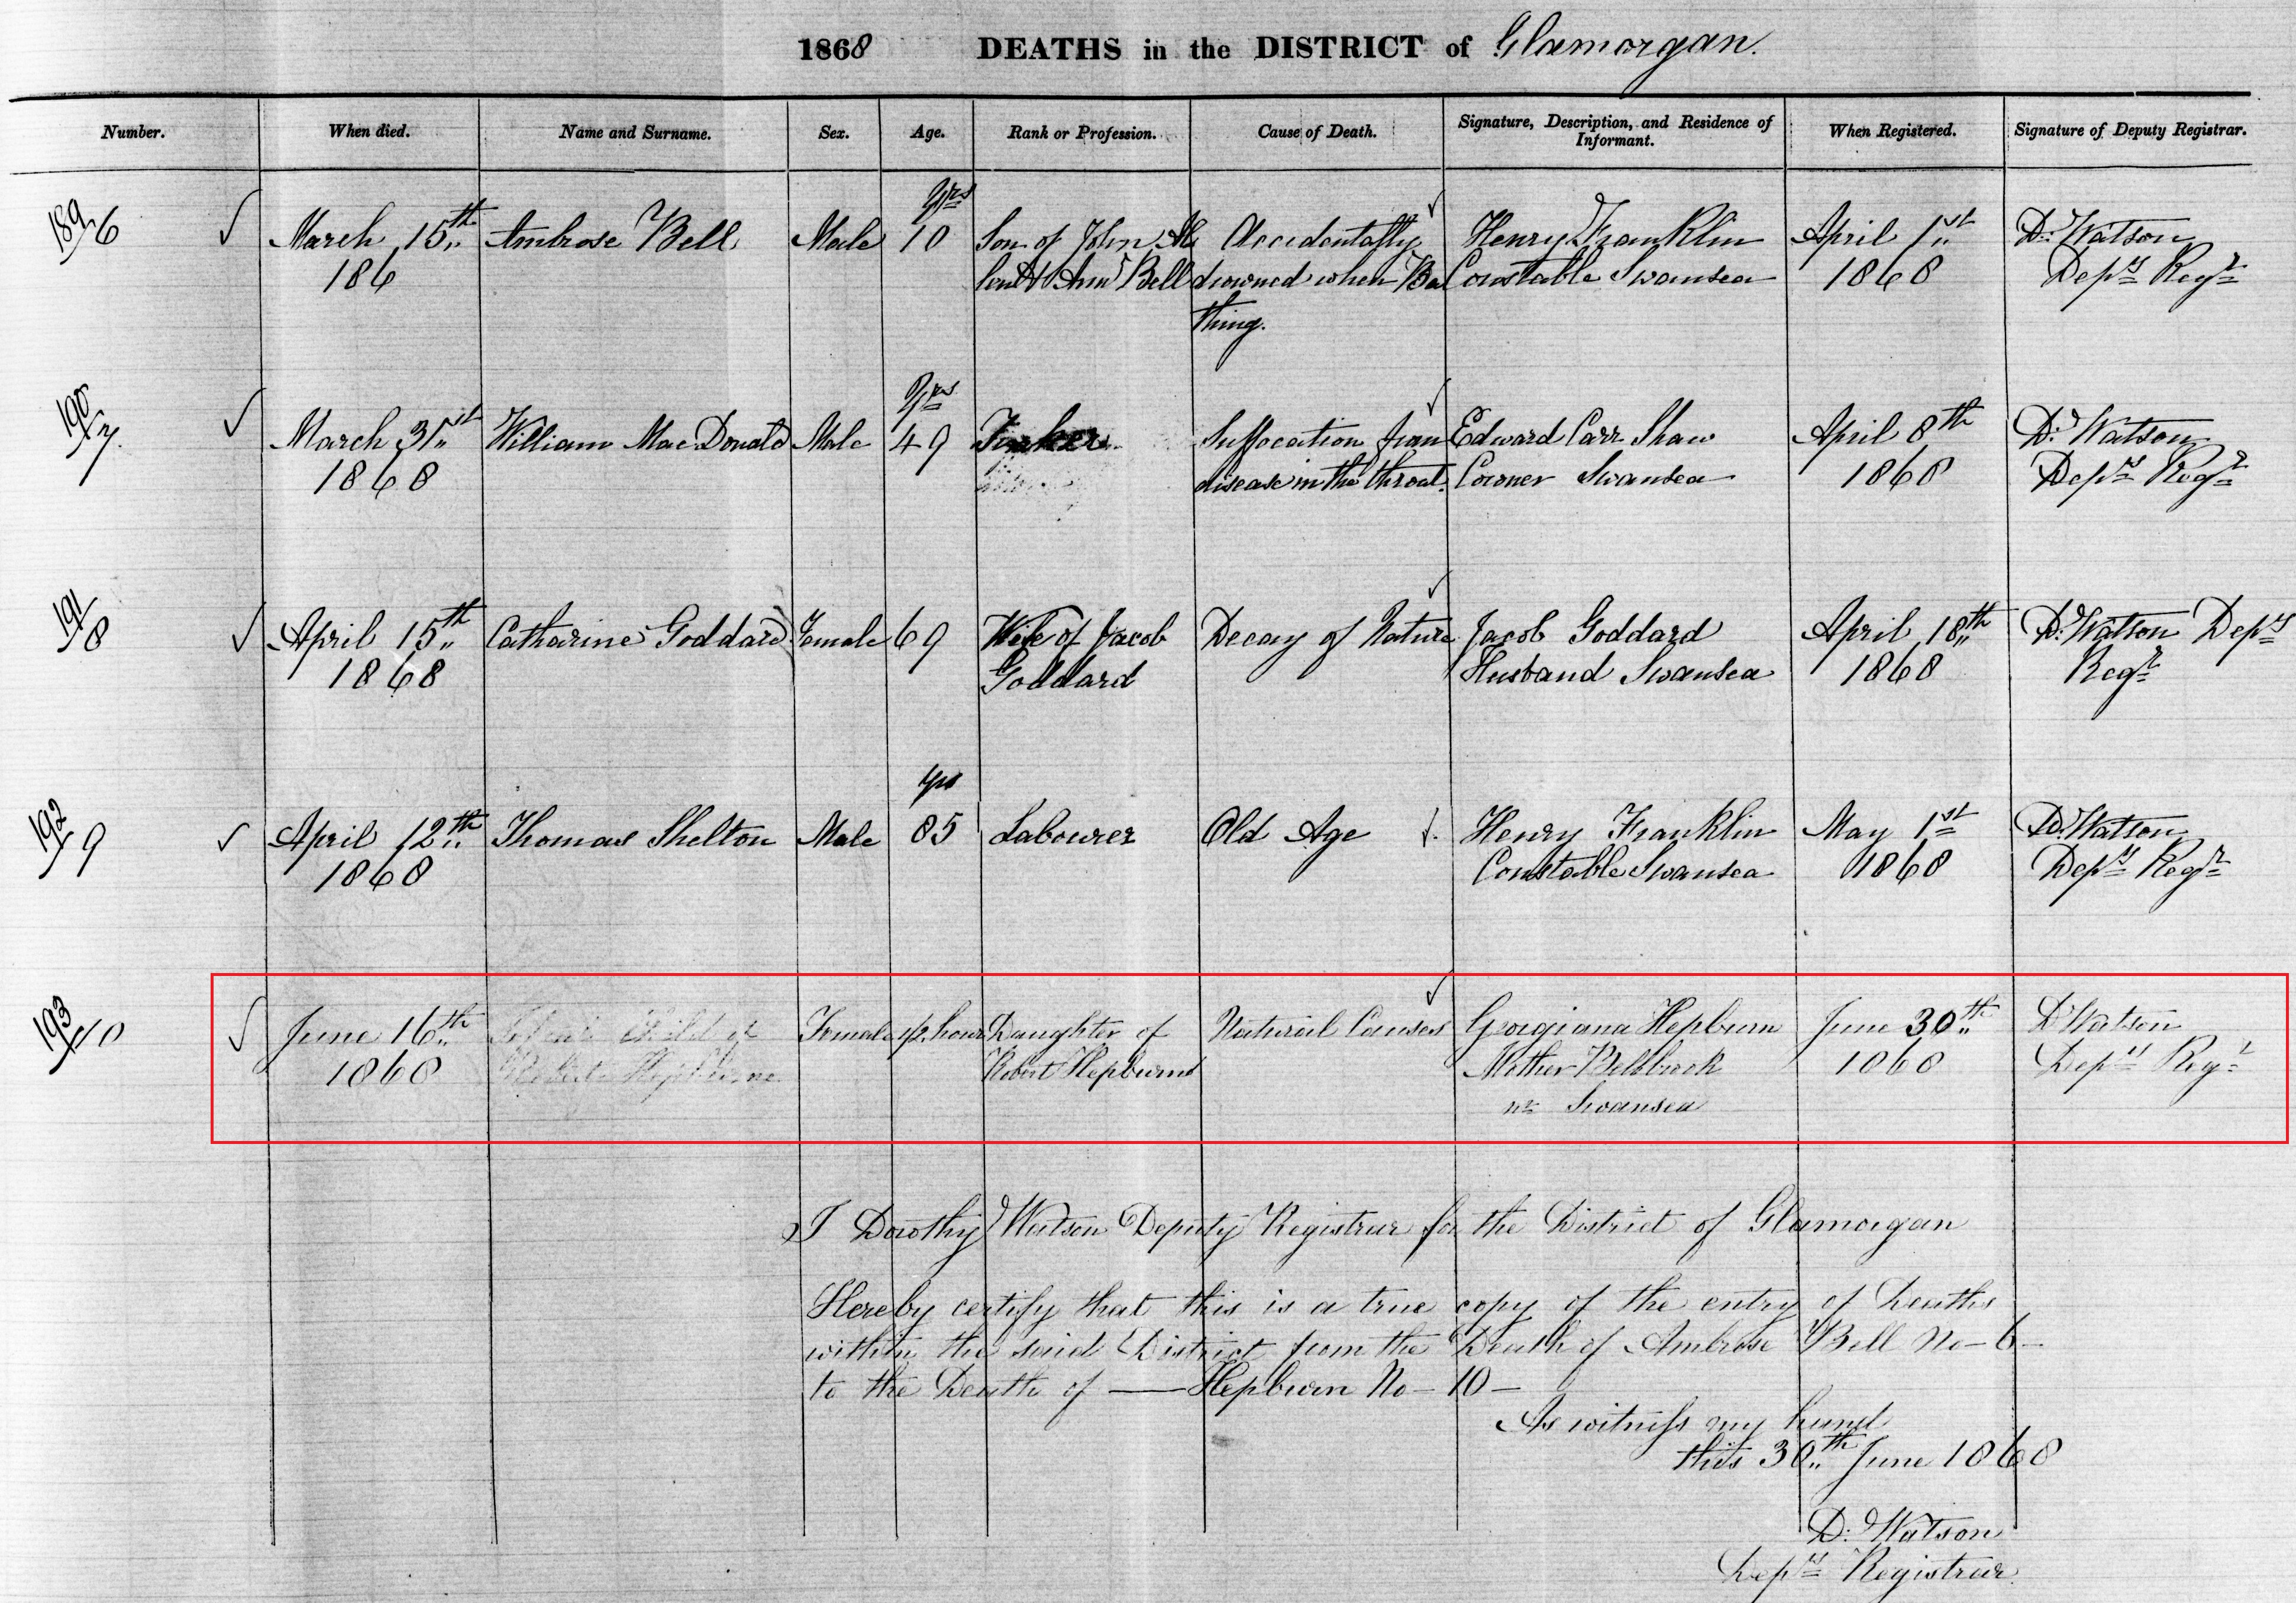 1868 DEATHS in the DISTRICT of Glamorgan.
Number. When died. Name and Surname. Sex. Age. Rank or Profession. Cause of Death. Signature, Description, and Residence of Informant. When Registered. Signature of Deputy Registrar.
yrs
189/6 March 15th Ambrose Bell Male 10 Son of John Al Accidentally Henry Franklin April 1st D: Watson
186 & Ann Bell drowned when Ba Constable Swansea 1868 Depy Regr
thing.
Yrs
190/7. March 31st William Mac Donald Male 49 Suffocation from Edward Carr Shaw April 8th D: Watson
1868 disease in the throat. Coroner Swansea 1868 Depy Regr
191/8 April 15th Catharine Goddard Female 69 Wife of Jacob Decay of Nature Jacob Goddard April 18th D: Watson Depy
1868 Goddard Husband Swansea 1868 Regr
yrs
192/9 April 12th Thomas Shelton Male 85 Labourer Old Age Henry Franklin May 1st D: Watson
1868 Constable Swansea 1868 Depy Regr
193/10 June 16th Child of Female 1/2 hour Daughter of Natural Causes Georgiana Hepburn June 30th D Watson
1868 Robert Hepburne Robert Hepburne Mother Bellbrook 1868 Depy Regr
nr Swansea
I Dorothy Watson Deputy Registrar for the District of Glamorgan
Hereby certify that this is a true copy of the entry of Deaths
within the said District from the Death of Ambrose Bell No-6-
to the Death of — Hepburn No-10-
As witness my hand
this 30th June 1868
D: Watson
Depy Registrar